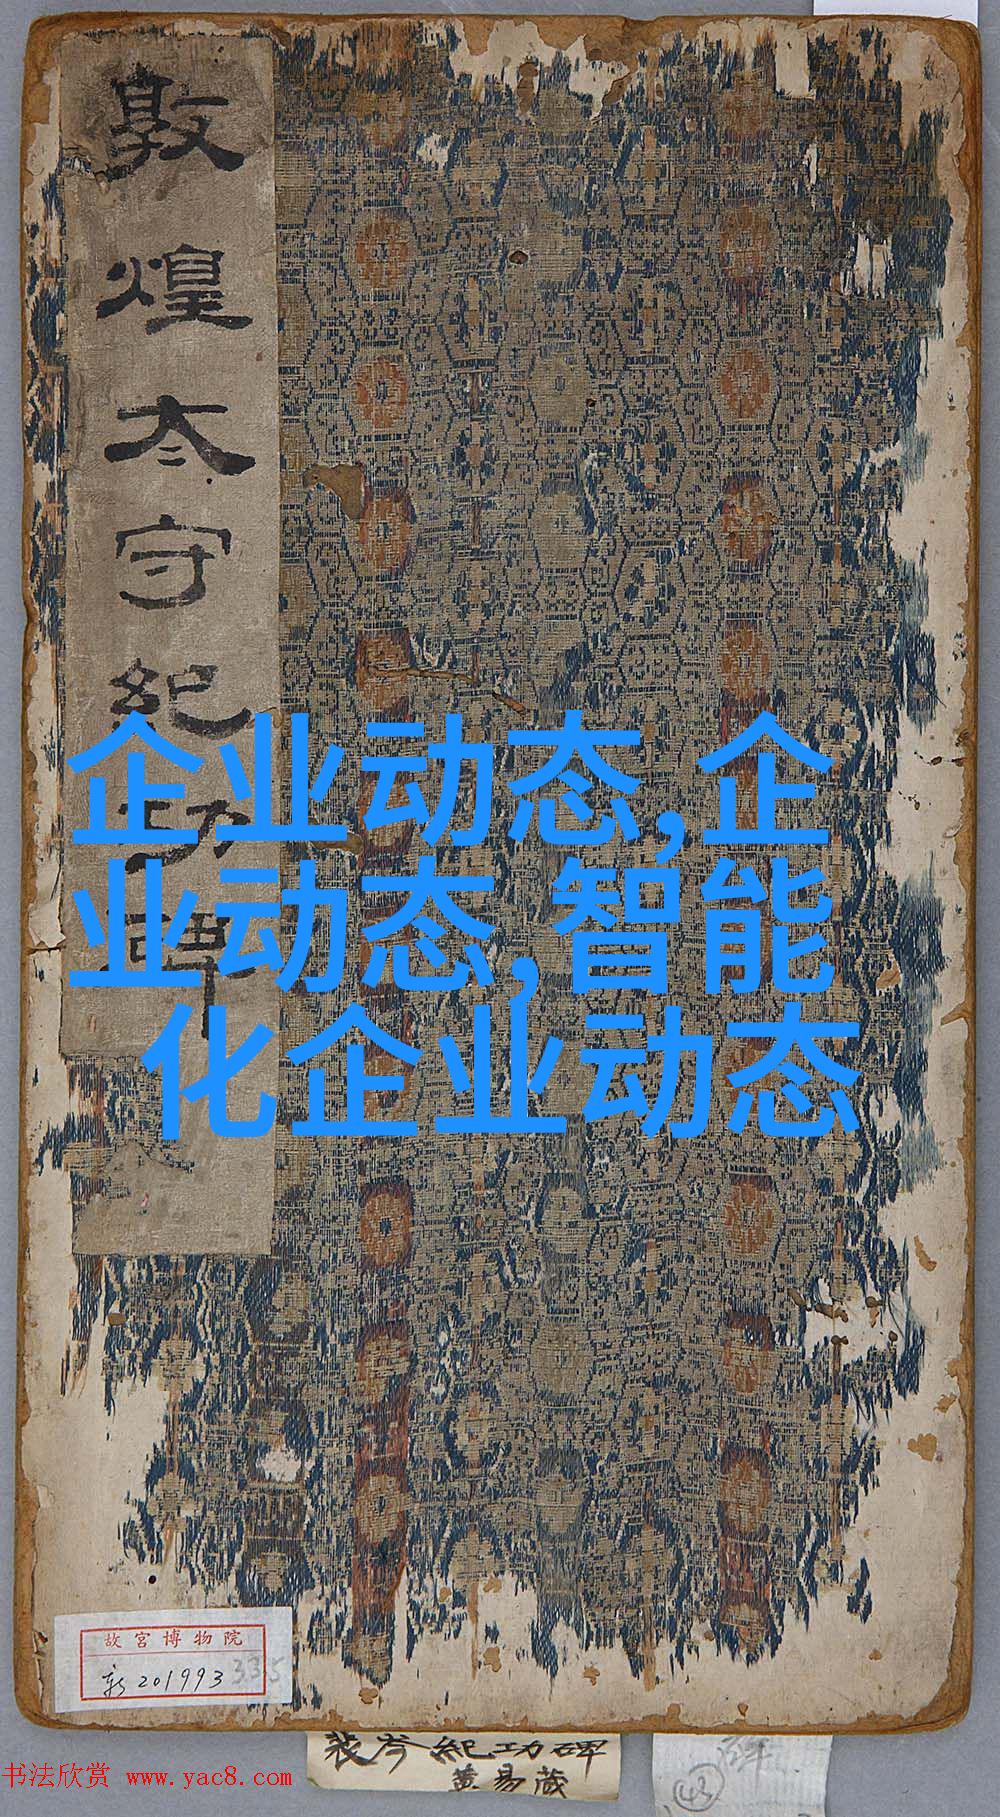 敦煌太守紀功碑
企业动态,企
业动态,智能
化企业动态
故宫博物院
新201993 335
裴岑紀功碑
黄易藏
43
书法欣赏 www.yac8.com